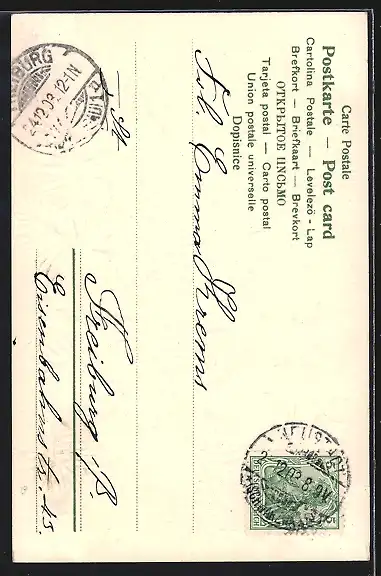 Carte Postale
Postkarte — Post card
Cartolina Postale — Levelező-Lap
Brefkort — Briefkaart — Brevkort
ОТКРЫТОЕ ПИСЬМО
Tarjeta postal — Carto postal
Union postale universelle
Dopisnice
Frl. Emma Krems
Freiburg B.
Eisenbahnstr. 43.